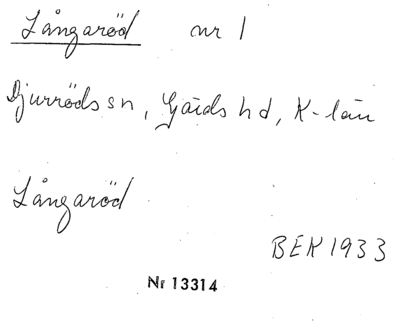 Långaröd nr 1
Djurröds sn, Gärds hd, K-län
Långaröd
BEK 1933
Nr 13314